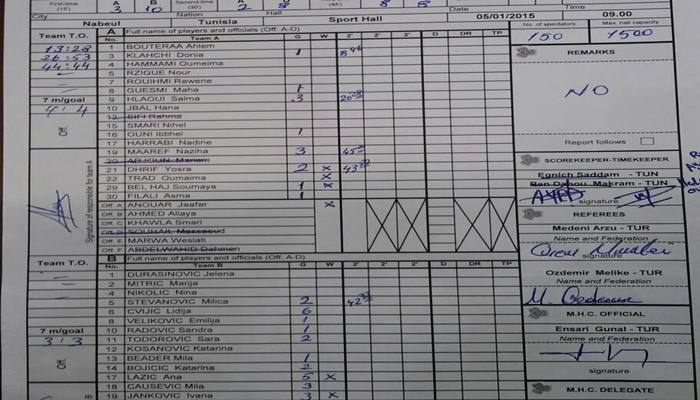 First-time (15') A 3 B 10 Second-time (30') A B (45')
City Nation Hall Date Time
Nabeul Tunisia Sport Hall 05/01/2015 09.00
No. of spectators Max. hall capacity
150 1500
Team T.O. A Full name of players and officials (Off. A-D)
No. Team A G W 2' 2' 2' D DR TP
13:28 1 BOUTERAA Ahlem
26:53 3 KLAHCHI Donia 1 8 46
44:44 4 HAMMAMI Oumeima
5 RZIGUE Nour
7 ROUIHMI Rawene
8 GUESMI Maha 1
7 m/goal 9 HLAOUI Salma 3
4/4 10 JBAL Hana
12 SIFI Rahma
Off. 15 SMARI Nihel
16 OUNI Ibtihel 1
17 HARRABI Nadine
19 MAAREF Naziha 3
20 ARJOUN Mariem
21 DHRIF Yosra 2 x
22 TRAD Oumaima x
29 BEL HAJ Soumaya 1 x
30 FILALI Asma 1
Signature of responsible for team A
Off. A ANOUAR Jaafar x
Off. B AHMED Allaya
Off. C KHAWLA Smari
Off. D SOUHAIL Messaoud
Off. E MARWA Weslati
Off. F ABDELWAHID Dahmen
REMARKS
NO
Report follows
SCOREKEEPER-TIMEKEEPER
Egnich Saddam - TUN
Ben Dahou Makram - TUN
signature
REFEREES
Medeni Arzu - TUR
Name and Federation
signature
Ozdemir Melike - TUR
M.H.C. OFFICIAL
Ensari Gunal - TUR
Name and Federation
signature
M.H.C. DELEGATE
Team T.O. B Full name of players and officials (Off. A-D)
No. Team B G W 2' 2' 2' D DR TP
1 DURASINOVIC Jelena
2 MITRIC Marija
4 NIKOLIC Nina
5 STEVANOVIC Milica 2
6 CVIJIC Lidija 6
8 VELIKOVIC Emilija 1
7 m/goal 10 RADOVIC Sandra 1
3/3 11 TODOROVIC Sara 2
12 KOSANOVIC Katarina
Off. 13 BEADER Mila 1
14 BOJICIC Katarina 2
17 LAZIC Ana 5 x
18 CAUSEVIC Mila 3
19 JANKOVIC Ivana 3 x